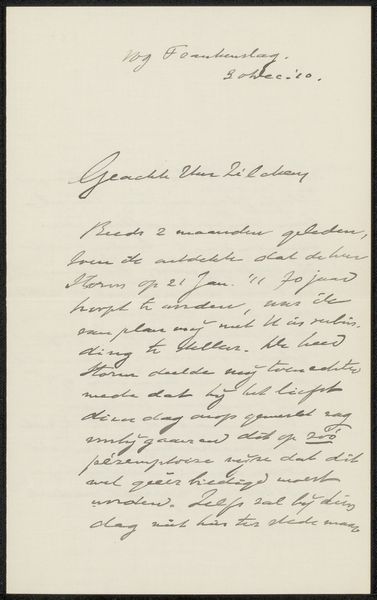 109 Frankenslag.
30 Dec. '10.
Geachte Heer Zilcken
Reeds 2 maanden geleden,
toen ik ontdekte dat de heer
Storm op 21 Jan. '11 70 jaar
hoopt te worden, was ik
van plan mij met U in verbin-
ding te stellen. De heer
Storm deelde mij toen echter
mede dat hij het liefst
dien dag onopgemerkt zag
voorbijgaan en dit op zóó
péremptoire wijze dat dit
wel geëerbiedigd moest
worden. Zelfs zal hij dien
dag niet hier ter stede maar